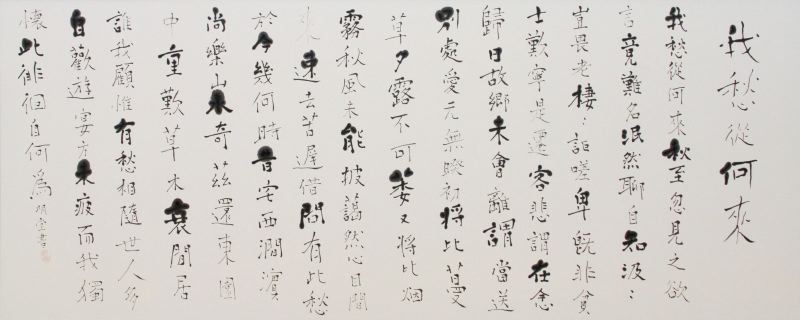 我愁從何來
我愁從何來秋至忽見之欲
言竟難名泯然聊自知汲：
豈畏老棲：詎嗟卑既非貧
士歎寧是遷客悲謂在念
歸日故鄉未曾離謂當送
別處愛元無睽初將比蔓
草夕露不可萎又將比烟
霧秋風未能披藹然心目間
來速去苦遲借問有此愁
於今幾何時昔宅西澗濱
尚樂山水奇茲還東園
中重歎草木衰閒居
誰我顧惟有愁相隨世人多
自歡遊宴方未疲而我獨
懷此徘徊自何爲 書